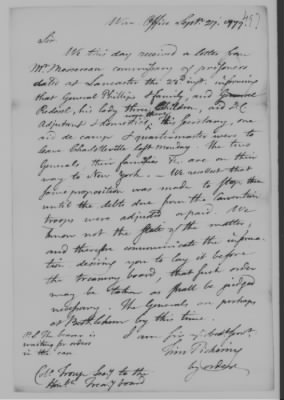 War Office Sept. 27. 1779
457
Sir
We this day received a letter from
Mr. Mersereau commissary of prisoners
dated at Lancaster the 23d inst. informing
that General Phillips & family, and General
Redisel, his lady three children, and
Adjutant & Secretary, one
aid de camp & quartermaster were to
leave Charlotteville last Monday. The two
Generals, their families &c. are on their
way to New York. — We recollect that
some proposition was made to stop them
until the debts due from the Convention
troops were adjusted & paid. We
know not the state of the matter,
and therefore communicate the informa-
tion desiring you to lay it before
the treasury board, that such order
may be taken as shall be judged
necessary. The Generals are perhaps
at Bethlehem by this time.
I am Sir yr. obedt servt.
Tim Pickering
by order
P.S. The bearer is
waiting for orders
in the case
Col. Troup Secy to the
Honble. Treasy board